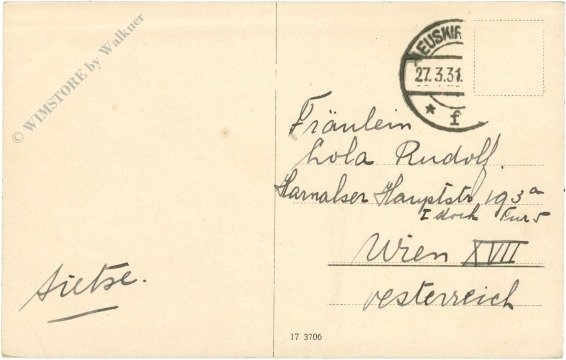 © WIMSTORE by Walkner
EUSKIR
27.3.31.
* f
Fräulein
Lola Rudolf.
Harnalser Hauptstr 193a
I Stock Tür 5
Wien XVII
Oesterreich
Sietse.
17 3706